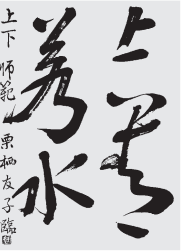 上善
若水
上下 師範 栗栖友子臨